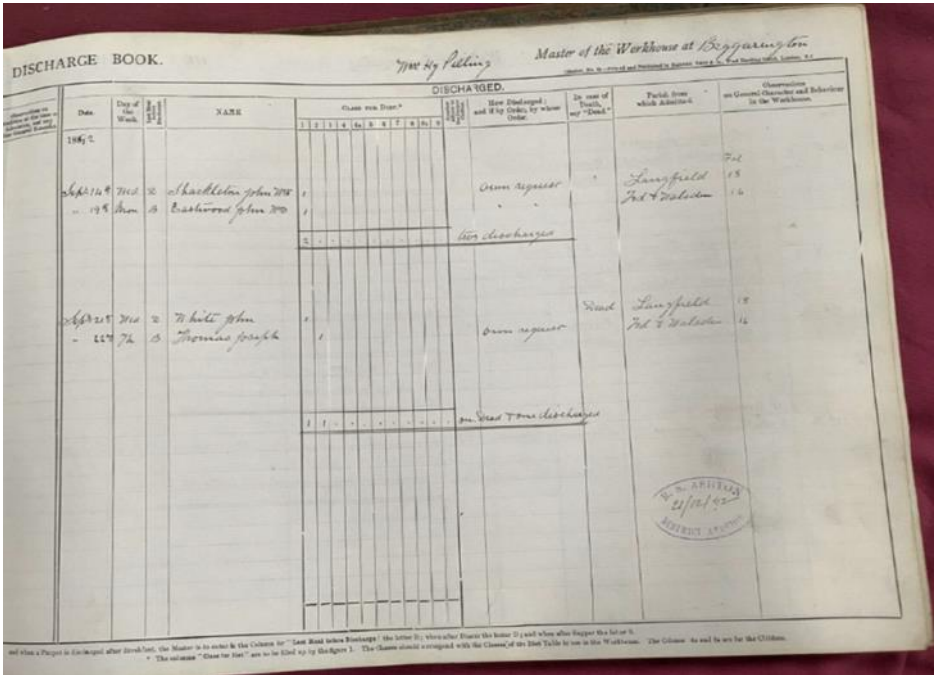 DISCHARGE BOOK.
Wm Hy Pilling Master of the Workhouse at Beggarington
DISCHARGED.
Date. Day of the Week. NAME CLASS FOR DIET.* How Discharged; and if by Order, by whose Order. In case of Death, say "Dead." Parish from which Admitted. Observations on General Character and Behaviour in the Workhouse.
1 2 3 4 4a 5 6 7 8 8a 9
1892
Fol
Septr 14th Wed 2 Shackleton John Wm 1 own request Langfield 18
" 19th Mon B Eastwood John Wm 1 " " Tod & Walsden 16
2 two discharged
Septr 21st Wed 2 White John 1 Dead Langfield 18
" 22nd Th B Thomas Joseph 1 own request Tod & Walsden 16
1 1 one Dead & one discharged
21/12/92
DISTRICT
and when a Pauper is discharged after Breakfast, the Master is to enter in the Column for "Last Meal before Discharge" the letter B; when after Dinner the letter D; and when after Supper the letter S.
* The columns "Class for Diet" are to be filled up by the figure 1. The Classes should correspond with the Classes of the Diet Table in use in the Workhouse. The Columns 4a and 8a are for the Children.